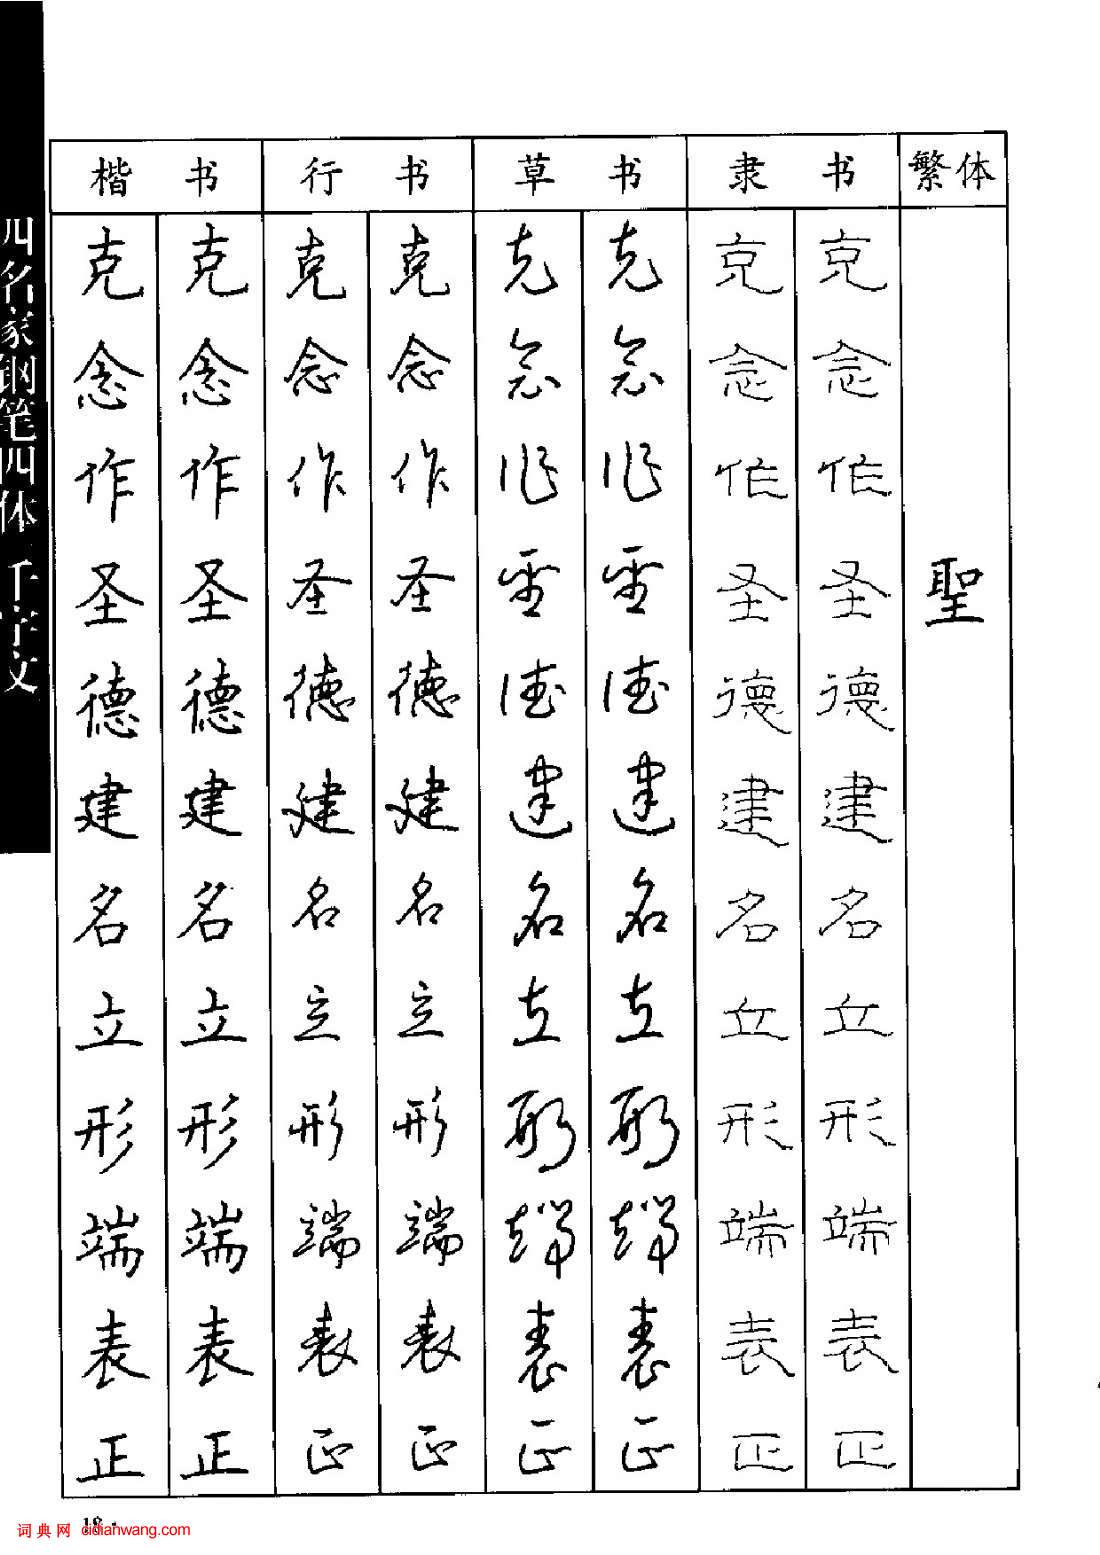 四名家钢笔四体千字文
楷书 行书 草书 隶书 繁体
克 克 克 克 克 克 克 克
念 念 念 念 念 念 念 念
作 作 作 作 作 作 作 作
圣 圣 圣 圣 圣 圣 圣 圣 聖
德 德 德 德 德 德 德 德
建 建 建 建 建 建 建 建
名 名 名 名 名 名 名 名
立 立 立 立 立 立 立 立
形 形 形 形 形 形 形 形
端 端 端 端 端 端 端 端
表 表 表 表 表 表 表 表
正 正 正 正 正 正 正 正
词典网 cidianwang.com